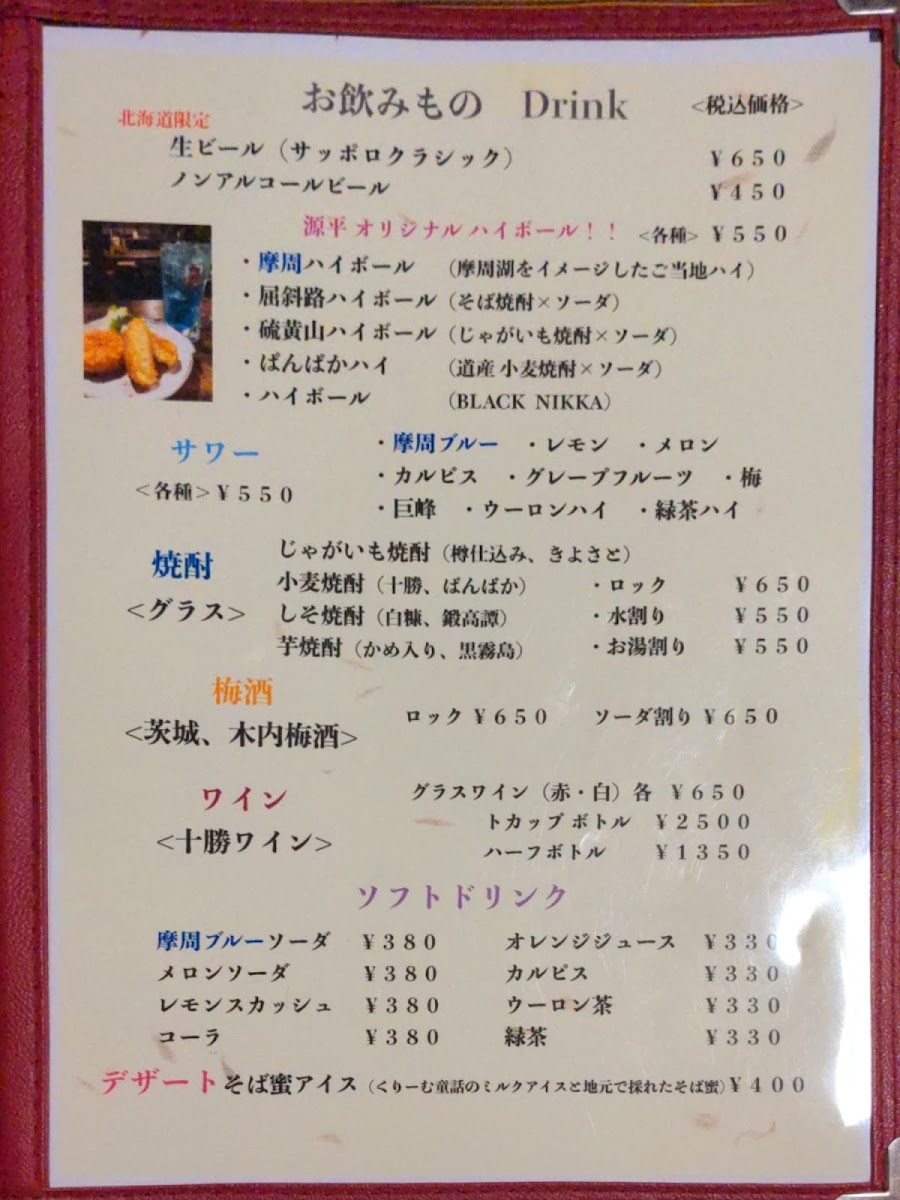 お飲みもの Drink <税込価格>
北海道限定
生ビール（サッポロクラシック） ¥650
ノンアルコールビール ¥450
源平 オリジナル ハイボール！！ <各種> ¥550
・摩周ハイボール （摩周湖をイメージしたご当地ハイ）
・屈斜路ハイボール（そば焼酎×ソーダ）
・硫黄山ハイボール（じゃがいも焼酎×ソーダ）
・ぱんぱかハイ （道産 小麦焼酎×ソーダ）
・ハイボール （BLACK NIKKA）
サワー
<各種>¥550
・摩周ブルー ・レモン ・メロン
・カルピス ・グレープフルーツ ・梅
・巨峰 ・ウーロンハイ ・緑茶ハイ
焼酎
<グラス>
じゃがいも焼酎（樽仕込み、きよさと）
小麦焼酎（十勝、ぱんぱか） ・ロック ¥650
しそ焼酎（白糠、鍛高譚） ・水割り ¥550
芋焼酎（かめ入り、黒霧島） ・お湯割り ¥550
梅酒
<茨城、木内梅酒>
ロック ¥650 ソーダ割り ¥650
ワイン
<十勝ワイン>
グラスワイン（赤・白）各 ¥650
トカップ ボトル ¥2500
ハーフボトル ¥1350
ソフトドリンク
摩周ブルーソーダ ¥380 オレンジジュース ¥330
メロンソーダ ¥380 カルピス ¥330
レモンスカッシュ ¥380 ウーロン茶 ¥330
コーラ ¥380 緑茶 ¥330
デザート そば蜜アイス（くりーむ童話のミルクアイスと地元で採れたそば蜜）¥400